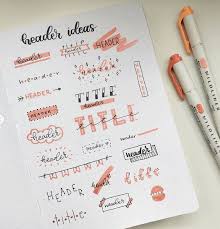 header ideas
header
TITLE
HEADER
header
header
HEADER
header
HEADER
TITLE
header
header
TITLE
header
header
HEADER
header
title
HEADER
header
title
MILDLINER